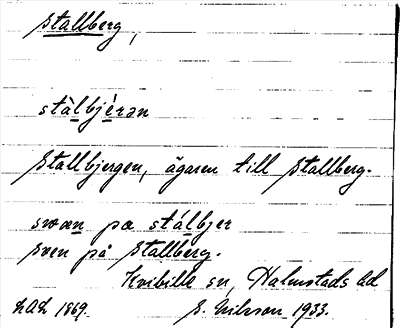 Stallberg,
stàlbjèrən
Stallbjergen, ägaren till Stallberg.
svæn pæ stálbjer
Sven på Stallberg.
Kvibille sn, Halmstads hd
LAL 1869. E. Nilsson, 1933.